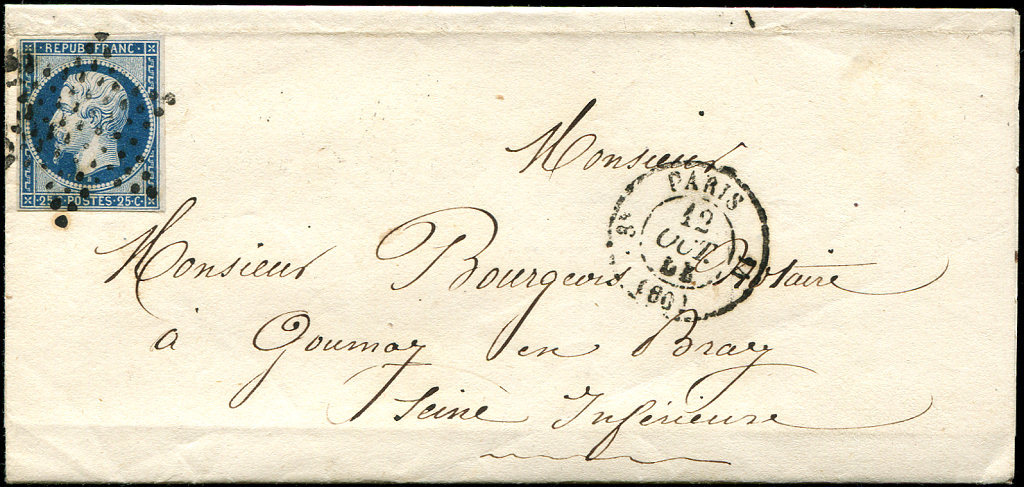 REPUB. FRANC.
25 C. POSTES 25 C.
Monsieur
PARIS
12
OCT.
(60)
Monsieur Bourgeois Notaire
à Gournay en Bray
Seine Inférieure